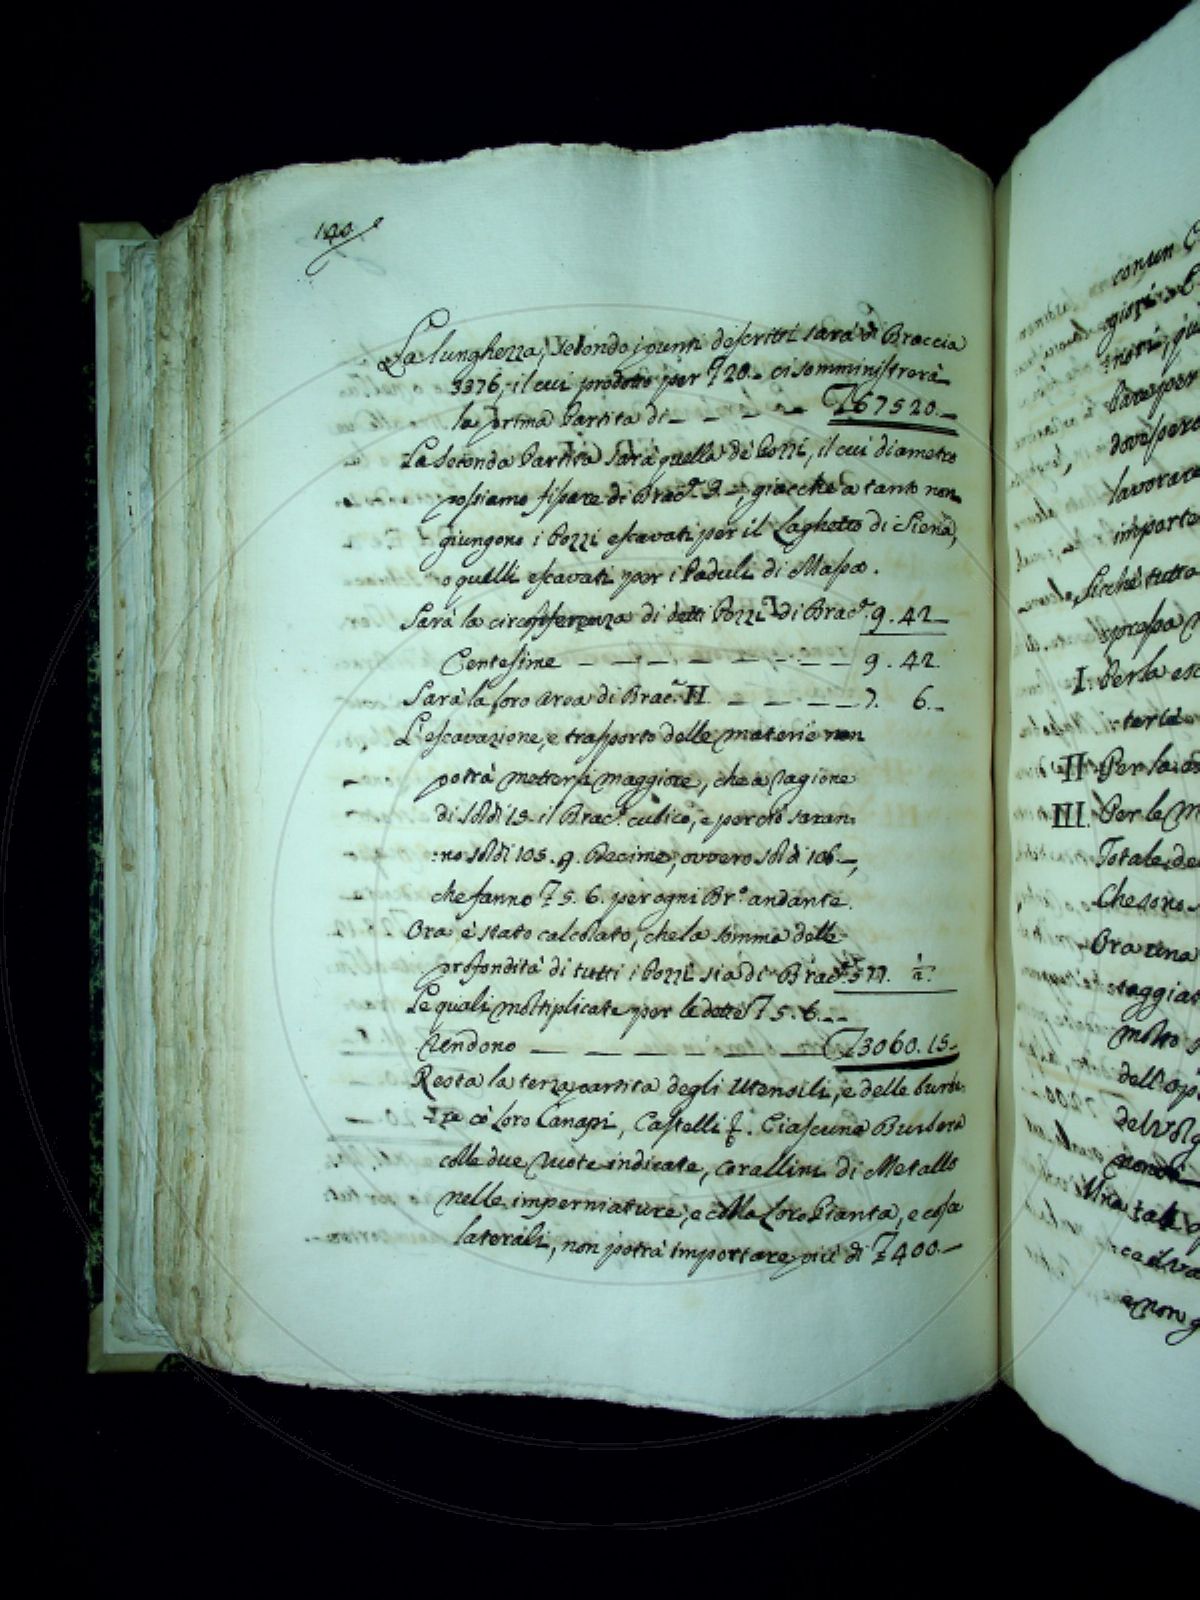 140
La lunghezza, secondo i punti descritti sarà di Braccia
3376, il cui prodotto per ₤ 20.— ci somministrerà
la prima Partita di — — — — ₤ 67520.—
La seconda Partita sarà quella de' Pozzi, il cui diametro
possiamo fissare di Brac.ª 3.—, giacchè a tanto non
giungono i Pozzi escavati per il Laghetto di Siena,
o quelli escavati per i Paduli di Massa.
Sarà la circonferenza di detti Pozzi di Brac.ª 9. 42—
Centesime — — — — — — — 9. 42.
Sarà la loro area di Brac.ª — — — — 7. 6.—
L'escavazione, e trasporto delle materie non
potrà mettersi maggiore, che a ragione
di soldi 15 il Brac.º cubico, e perciò saran:
:no soldi 105. 9. Decime, ovvero soldi 106—,
che fanno ₤ 5. 6. per ogni Br.º andante.
Ora è stato calcolato, che la somma delle
profondità di tutti i Pozzi sia di Brac.ª 577. ½.
Le quali moltiplicate per le dette ₤ 5. 6.—
rendono — — — — — ₤ 3060. 15—
Resta la terza partita degli Utensili, e delle burbe:
:re co' loro Canapi, Castelli &. Ciascuna Burbera
colle due ruote indicate, corallini di Metallo
nelle imperniature, e colla loro Pianta, e cosa
laterali, non potrà importare più di ₤ 400.—
con un
giori
:nori,
Para
dov
lavorare
importe
Sicchè tutta
spresa
I. Per la esc
terie
II. Per la
III. Per le M
Totale de
Che sono
Ora una
raggiat
molto
dell'
del
non
Una tal
e non